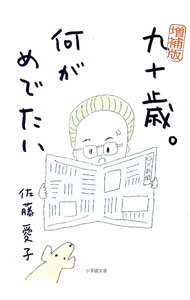 増補版
九十歳。
何が
めでたい
佐藤愛子
小学館文庫